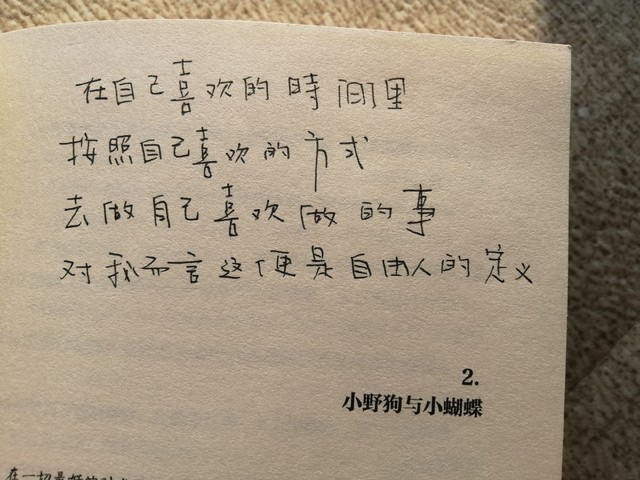 在自己喜欢的時间里
按照自己喜欢的方式
去做自己喜欢做的事
对我而言这便是自由人的定义
2.
小野狗与小蝴蝶
在一切最